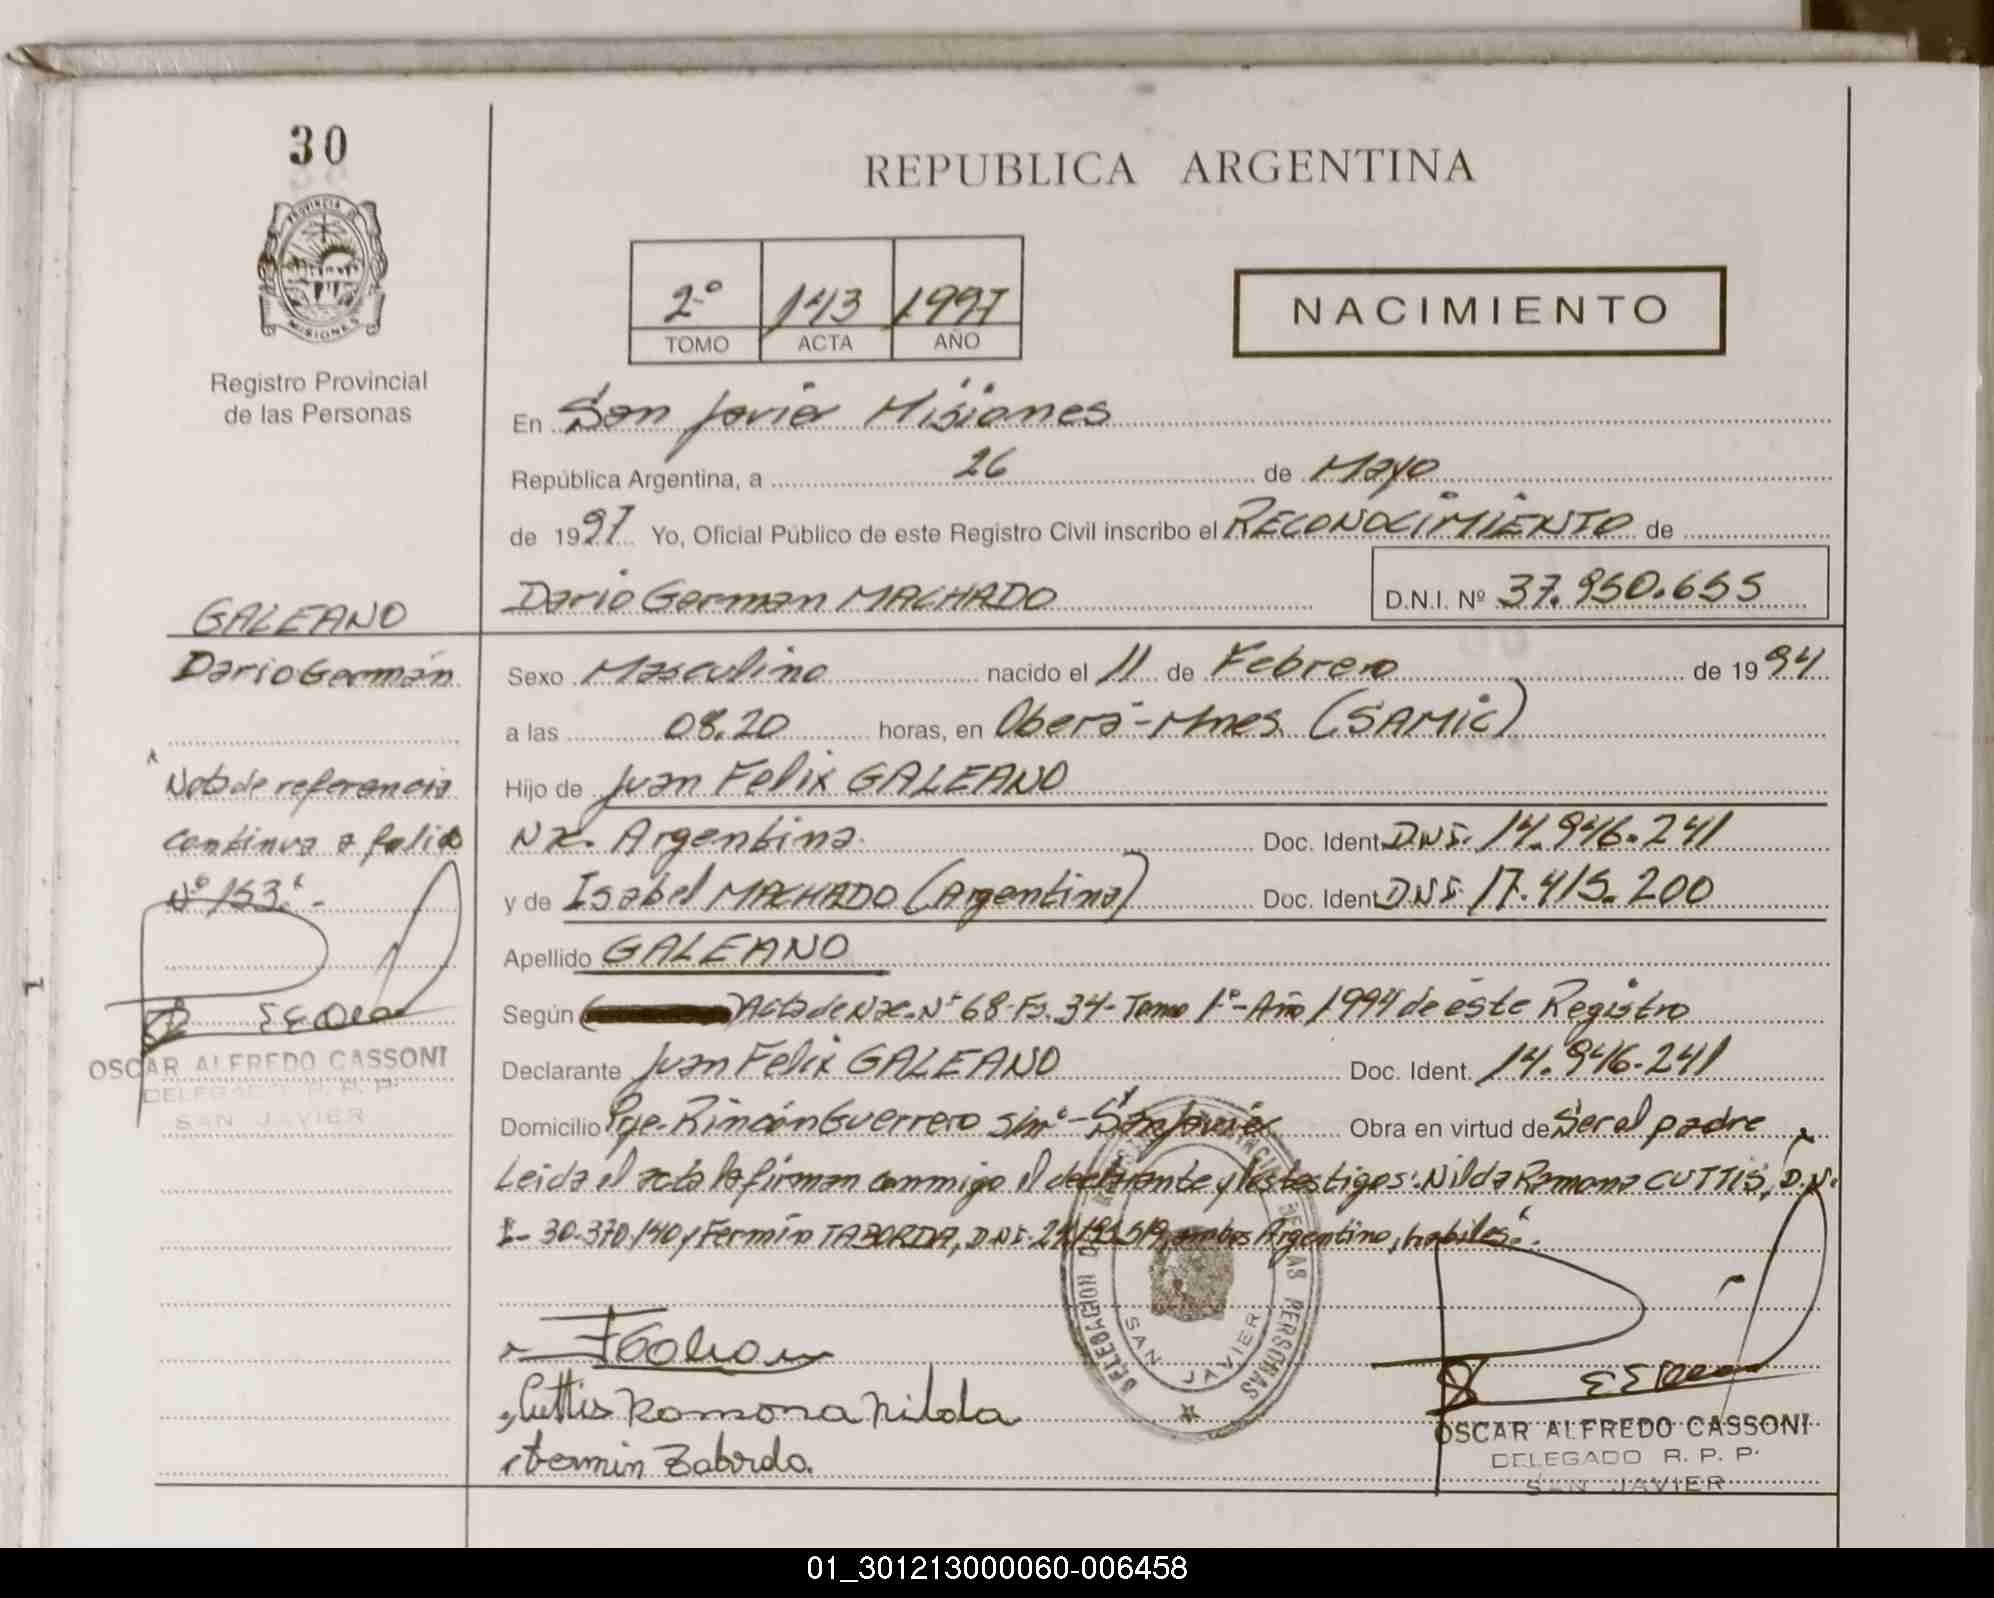 30
PROVINCIA DE
MISIONES
Registro Provincial
de las Personas
REPUBLICA ARGENTINA
2º 143 1997
TOMO ACTA AÑO
NACIMIENTO
En San Javier Misiones
República Argentina, a 26 de Mayo
de 1997 Yo, Oficial Público de este Registro Civil inscribo el RECONOCIMIENTO de
Dario German MACHADO D.N.I. Nº 37.950.655
GALEANO
Dario Germán
Nota de referencia
continua a folio
Nº 153.-
OSCAR ALFREDO CASSONI
DELEGADO R. P. P.
SAN JAVIER
Sexo Masculino nacido el 11 de Febrero de 1994
a las 08.20 horas, en Oberá-Mnes. (SAMIC)
Hijo de Juan Felix GALEANO
Nac. Argentina Doc. Ident. D.N.I. 14.946.241
y de Isabel MACHADO (Argentina) Doc. Ident. D.N.I. 17.415.200
Apellido GALEANO
Según Acta de Nac. Nº 68-Fs. 34-Tomo 1º-Año 1994 de este Registro
Declarante Juan Felix GALEANO Doc. Ident. 14.946.241
Domicilio Pje. Rincón Guerrero s/nº-San Javier Obra en virtud de Ser el padre
Leida el acta la firman conmigo el declarante y los testigos: Nilda Ramona CUTTIS, D.N.
I- 30.370.140 y Fermín TABORDA, D.N.I. ambos Argentino, habiles.-
DELEGACION DE LAS PERSONAS
SAN JAVIER
Cuttis Ramona Nilda
Fermin Taborda.
OSCAR ALFREDO CASSONI
DELEGADO R. P. P.
SAN JAVIER
01_301213000060-006458